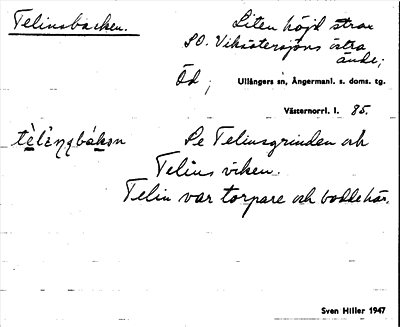 Telinsbacken.
Liten höjd strax
SO. Vikästersjöns östra
ände;
Öd;
Ullångers sn, Ångermanl. s. doms. tg.
Västernorrl. l. 85.
Se Telinsgrinden och
Telins viken.
Telin var torpare och bodde här.
Sven Hiller 1947